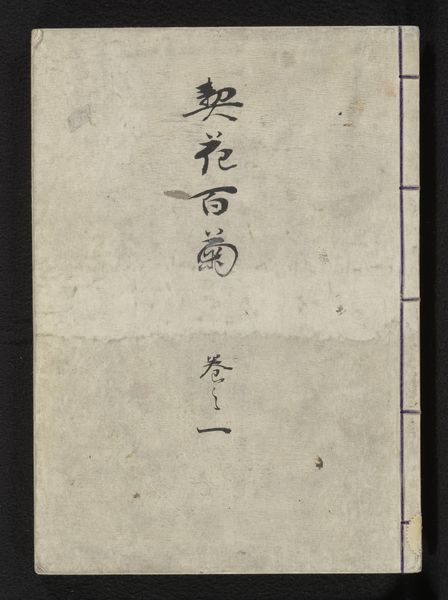 契花百菊
巻之一